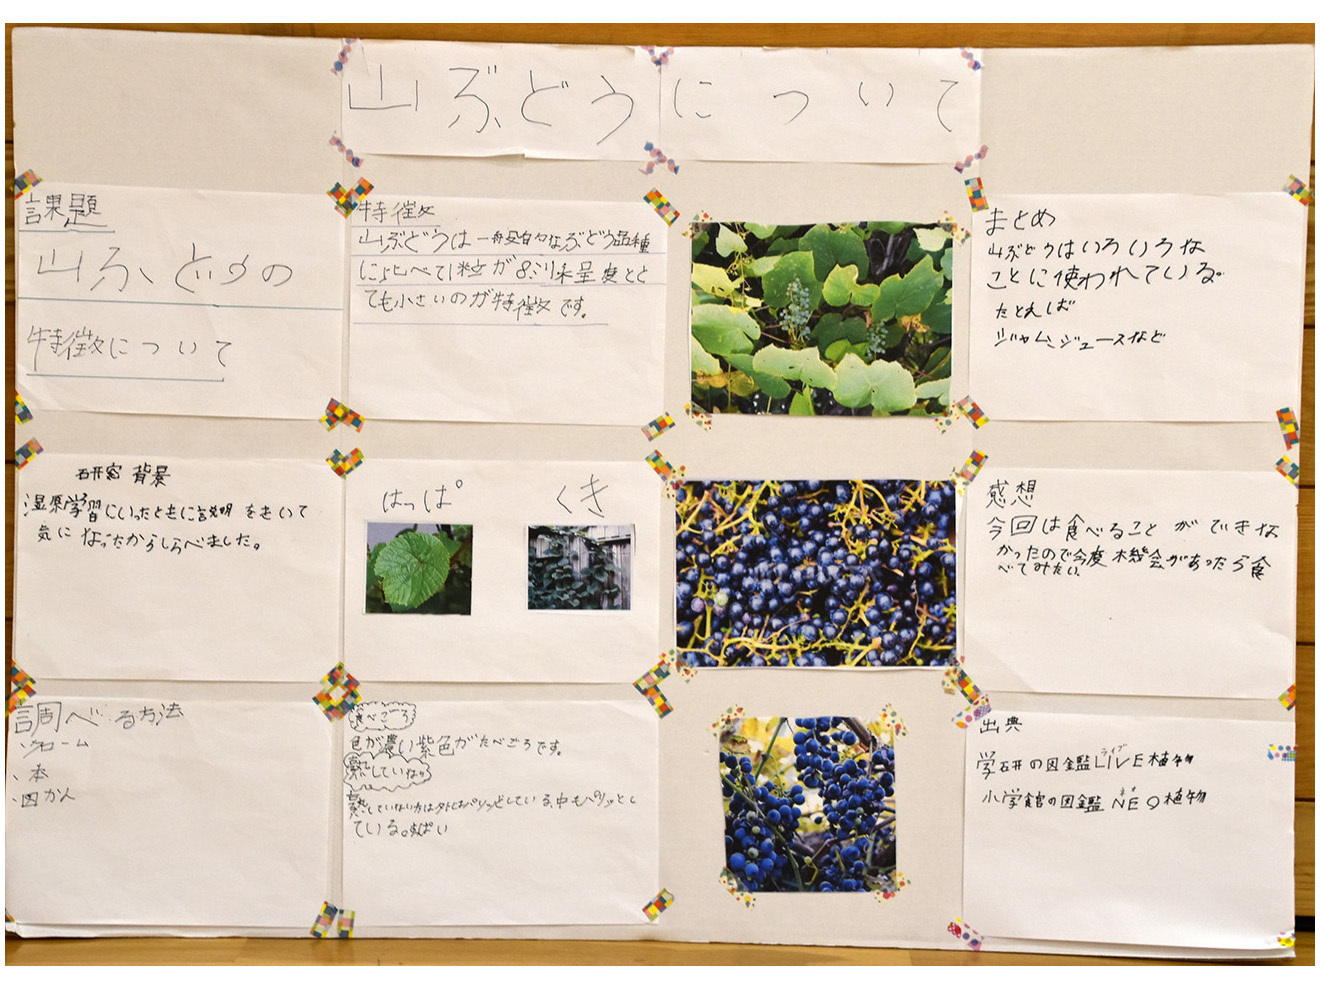 山ぶどうについて
課題
山ぶどうの
特徴について
研究背景
湿原学習にいったときに説明をきいて
気になったからしらべました。
調べる方法
、クローム
、本
、図かん
特徴
山ぶどうは一般的なぶどう品種
に比べて1粒が8ミリ未呈度とと
ても小さいのが特徴です。
はっぱ
くき
食べごろ
色が濃い紫色がたべごろです。
熟していない
熟していない方は外はパリッとしている中もパリッとし
ている。すっぱい
まとめ
山ぶどうはいろいろな
ことに使われている。
たとえば
ジャム、ジュースなど
感想
今回は食べることができな
かったので今度機会があったら食
べてみたい。
出典
学研の図鑑LIVE植物
ライブ
小学館の図鑑NEO植物
ネオ